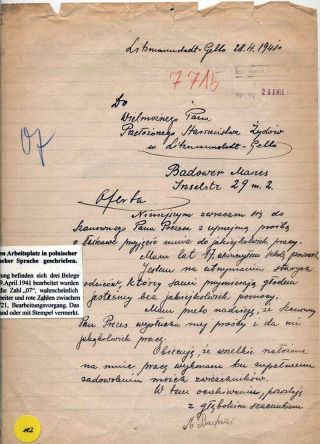 Litzmannstadt-Getto 28.4.1941
7715
Do
Wielmożnego Pana
Przełożonego Starszeństwa Żydów
w Litzmannstadt-Getto
Badower Manes
Inselstr 29 m. 2.
Oferta
Niniejszym zwracam się do
Szanownego Pana Prezesa z uprzejmą prośbą
o łaskawe przyjęcie mnie do jakiejkolwiek pracy.
Mam lat 17,
Jestem na utrzymaniu starych
rodziców, którzy sami przymierają głodem
jesteśmy bez jakiejkolwiek pomocy.
Mam przeto nadzieję, że Szanowny
Pan Prezes wysłucha mej prośby i da mi
jakąkolwiek pracę.
Obiecuję, że wszelkie nałożone
na mnie pracę wykonam ku zupełnemu
zadowoleniu moich zwierzchników.
W tem oczekiwaniu, pozostaję
z głębokim szacunkiem
M. Badower
07
m Arbeitsplatz in polnischer
scher Sprache geschrieben.
ung befinden sich drei Belege
9.April.1941 bearbeitet wurden
die Zahl „07", wahrscheinlich
beiter und rote Zahlen zwischen
'21, Bearbeitungsvorgang. Das
und oder mit Stempel vermerkt.